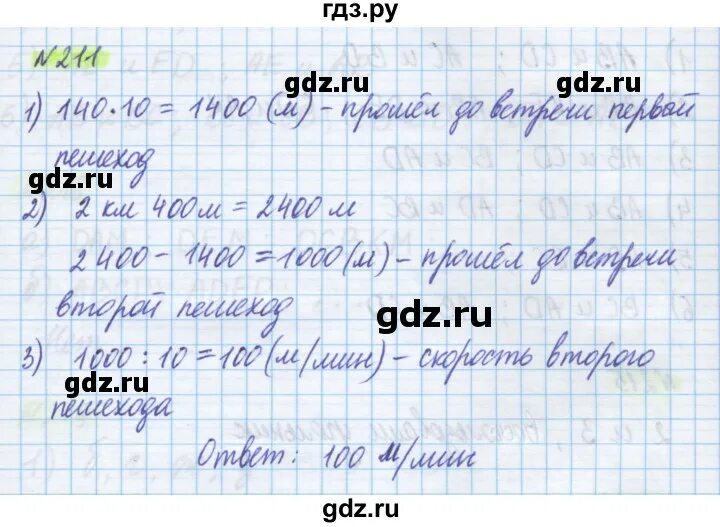 гдз.ру
№211
gdz.ru gdz.ru
1) 140·10 = 1400 (м) - прошёл до встречи первый
пешеход
gdz.ru gdz.ru
2) 2 км 400 м = 2400 м
2400 - 1400 = 1000 (м) - прошёл до встречи
второй пешеход
gdz.ru
3) 1000 : 10 = 100 (м/мин) - скорость второго
пешехода
gdz.ru gdz.ru
Ответ: 100 м/мин
gdz.ru